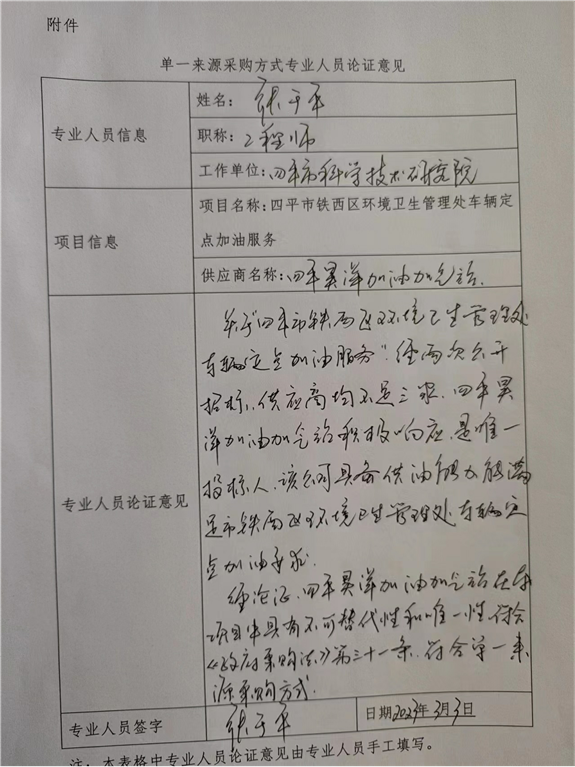 附件
单一来源采购方式专业人员论证意见
专业人员信息
姓名：张于平
职称：工程师
工作单位：四平市科学技术研究院
项目信息
项目名称：四平市铁西区环境卫生管理处车辆定
点加油服务
供应商名称：四平昊洋加油加气站.
专业人员论证意见
关于“四平市铁西区环境卫生管理处
车辆定点加油服务”经两次公开
招标，供应商均不足三家，四平昊
洋加油加气站积极响应，是唯一
投标人，该公司具备供油能力能满
足市铁西区环境卫生管理处车辆定
点加油要求.
经论证，四平昊洋加油加气站在本
项目中具有不可替代性和唯一性，符合
《政府采购法》第三十一条，符合单一来
源采购方式.
专业人员签字
张于平
日期2023年3月3日
注：本表格中专业人员论证意见由专业人员手工填写。